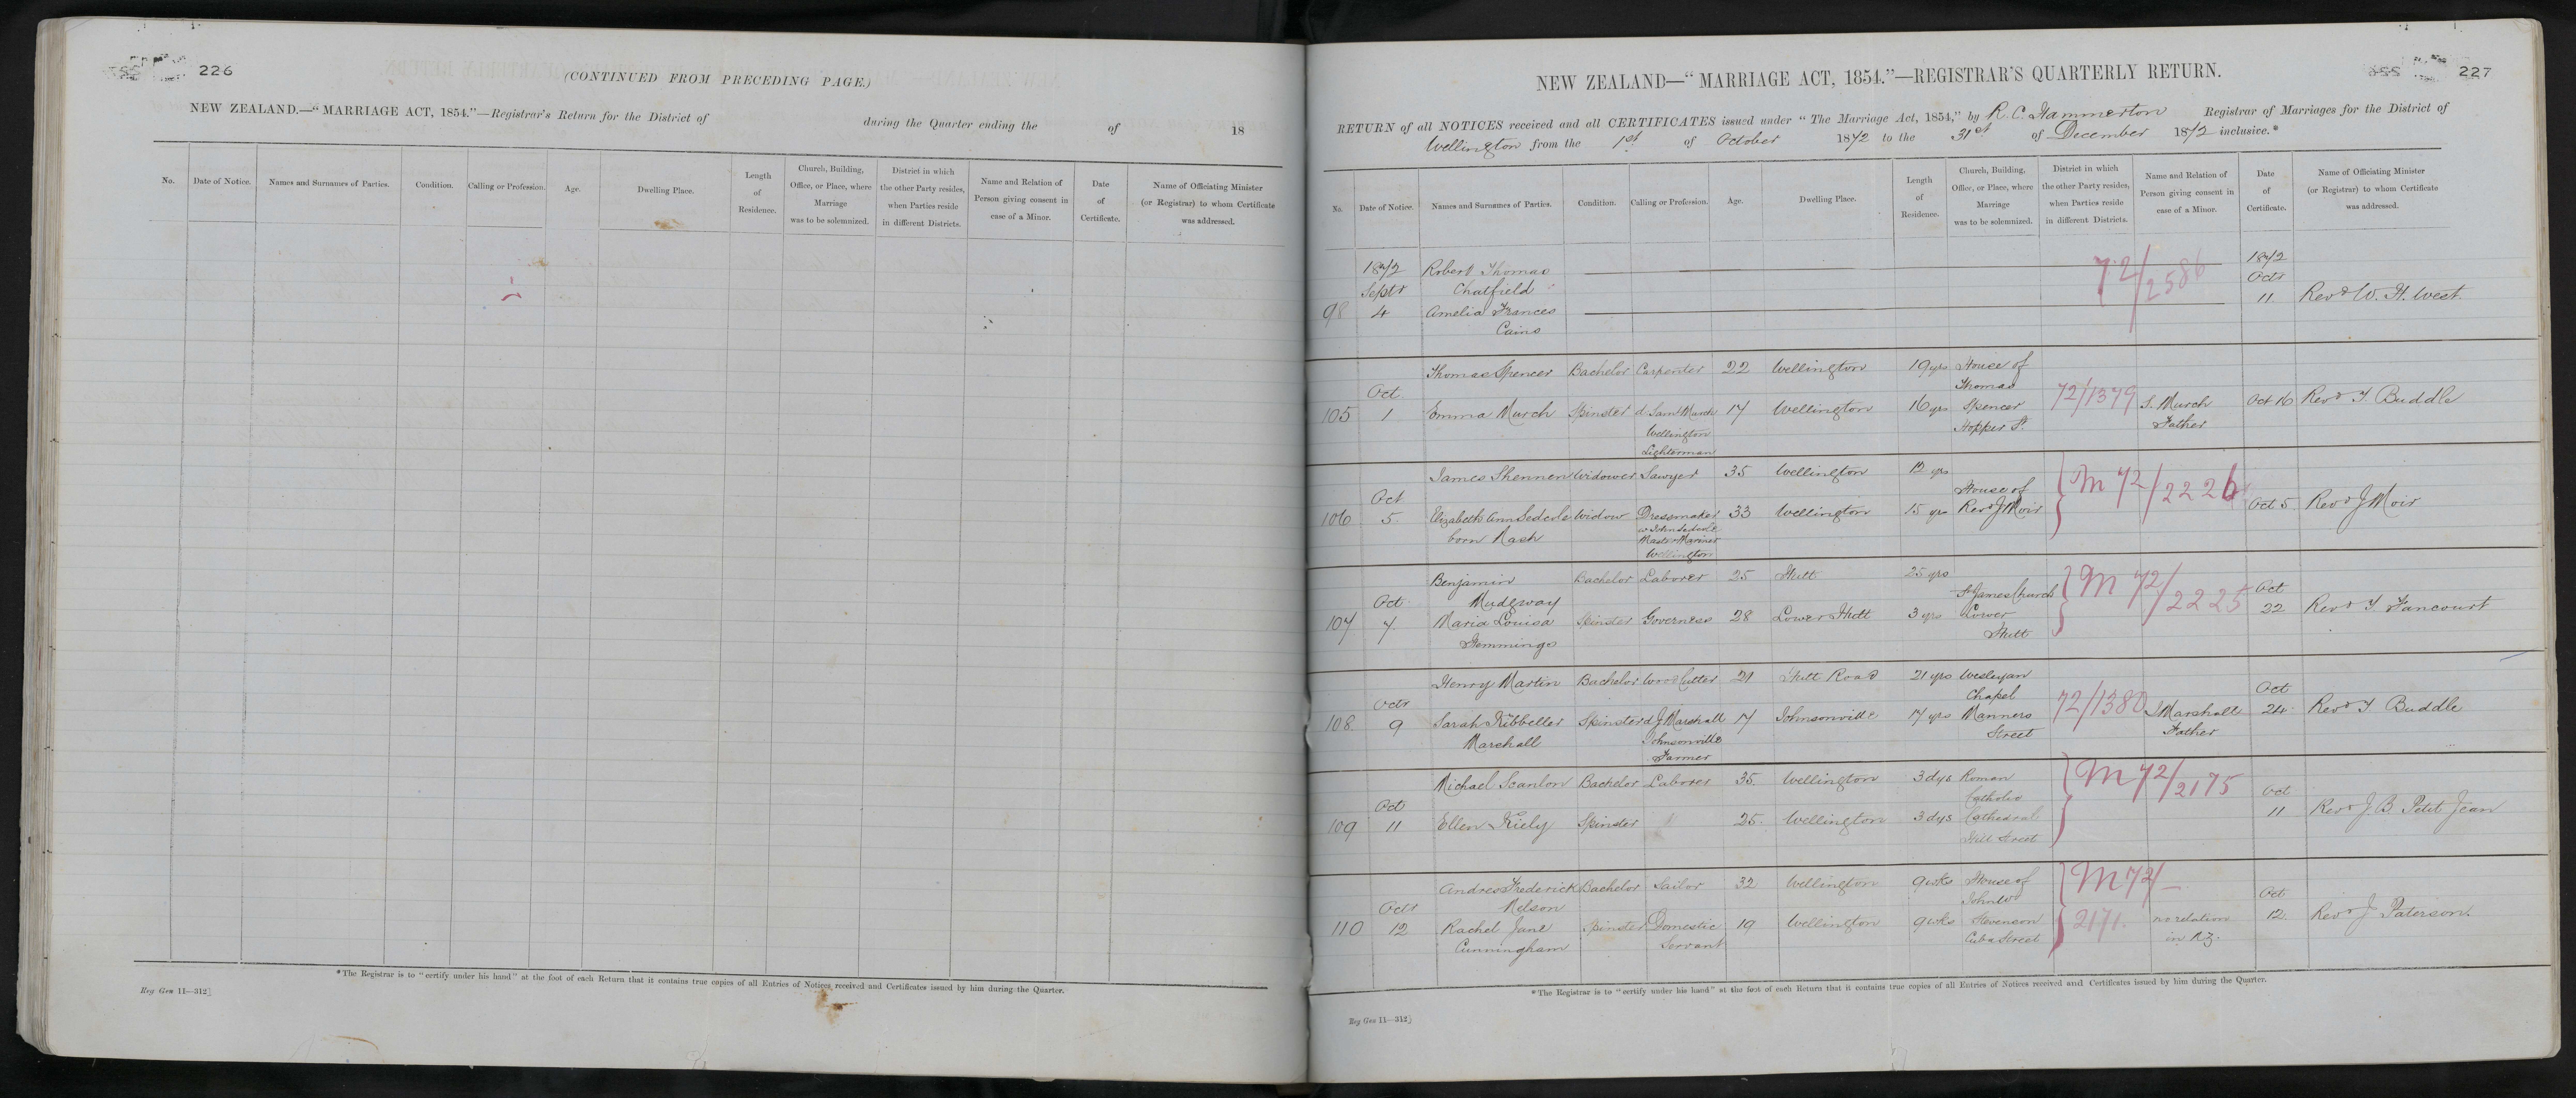 226
(CONTINUED FROM PRECEDING PAGE.)
NEW ZEALAND.—“MARRIAGE ACT, 1854.”—Registrar's Return for the District of during the Quarter ending the of 18
No. Date of Notice. Names and Surnames of Parties. Condition. Calling or Profession. Age. Dwelling Place. Length of Residence. Church, Building, Office, or Place, where Marriage was to be solemnized. District in which the other Party resides, when Parties reside in different Districts. Name and Relation of Person giving consent in case of a Minor. Date of Certificate. Name of Officiating Minister (or Registrar) to whom Certificate was addressed.
*The Registrar is to “certify under his hand” at the foot of each Return that it contains true copies of all Entries of Notices received and Certificates issued by him during the Quarter.
Reg Gen 11—312]
227
NEW ZEALAND—“MARRIAGE ACT, 1854.”—REGISTRAR'S QUARTERLY RETURN.
RETURN of all NOTICES received and all CERTIFICATES issued under “The Marriage Act, 1854,” by R. C. Hammerton Registrar of Marriages for the District of
Wellington from the 1st of October 1872 to the 31st of December 1872 inclusive.*
No. Date of Notice. Names and Surnames of Parties. Condition. Calling or Profession. Age. Dwelling Place. Length of Residence. Church, Building, Office, or Place, where Marriage was to be solemnized. District in which the other Party resides, when Parties reside in different Districts. Name and Relation of Person giving consent in case of a Minor. Date of Certificate. Name of Officiating Minister (or Registrar) to whom Certificate was addressed.
1872 Robert Thomas 72/2586 1872
Septr Chatfield Octr
98 4 Amelia Frances 11 Revd W. H. West
Cains
Thomas Spencer Bachelor Carpenter 22 Wellington 19 yrs House of
Oct Thomas
105 1 Emma Murch Spinster d. Saml Murch 17 Wellington 16 yrs Spencer 72/1379 S. Murch Oct 16 Revd T. Buddle
Wellington Hopper St. Father
Lighterman
James Shennen Widower Sawyer 35 Wellington 12 yrs
Oct House of M 72/2226
106 5 Elizabeth Ann Sedcole Widow Dressmaker 33 Wellington 15 yrs Revd J Moir Oct 5 Revd J Moir
born Nash w John Sedcole
Master Mariner
Wellington
Benjamin Bachelor Laborer 25 Hutt 25 yrs M 72/2225
Oct Mudgway St James Church Oct
107 7 Maria Louisa Spinster Governess 28 Lower Hutt 3 yrs Lower 22 Revd T. Fancourt
Hemmings Hutt
Henry Martin Bachelor Wood Cutter 21 Hutt Road 21 yrs Wesleyan
Octr Chapel Oct
108 9 Sarah Kibbeller Spinster d J Marshall 17 Johnsonville 17 yrs Manners 72/1380 J Marshall 24 Revd T Buddle
Marshall Johnsonville Street Father
Farmer
Michael Scanlon Bachelor Laborer 35 Wellington 3 dys Roman M 72/2175
Oct Catholic Oct
109 11 Ellen Kiely Spinster 25 Wellington 3 dys Cathedral 11 Revd J. B. Petit Jean
Hill Street
Andrew Frederick Bachelor Sailor 32 Wellington 9 wks House of M 72/
Octr Nelson John Wd Oct
110 12 Rachel Jane Spinster Domestic 19 Wellington 9 wks Stevenson 2171 no relation 12 Revd J Paterson
Cunningham Servant Cuba Street in N.Z.
*The Registrar is to “certify under his hand” at the foot of each Return that it contains true copies of all Entries of Notices received and Certificates issued by him during the Quarter.
Reg Gen 11—312]